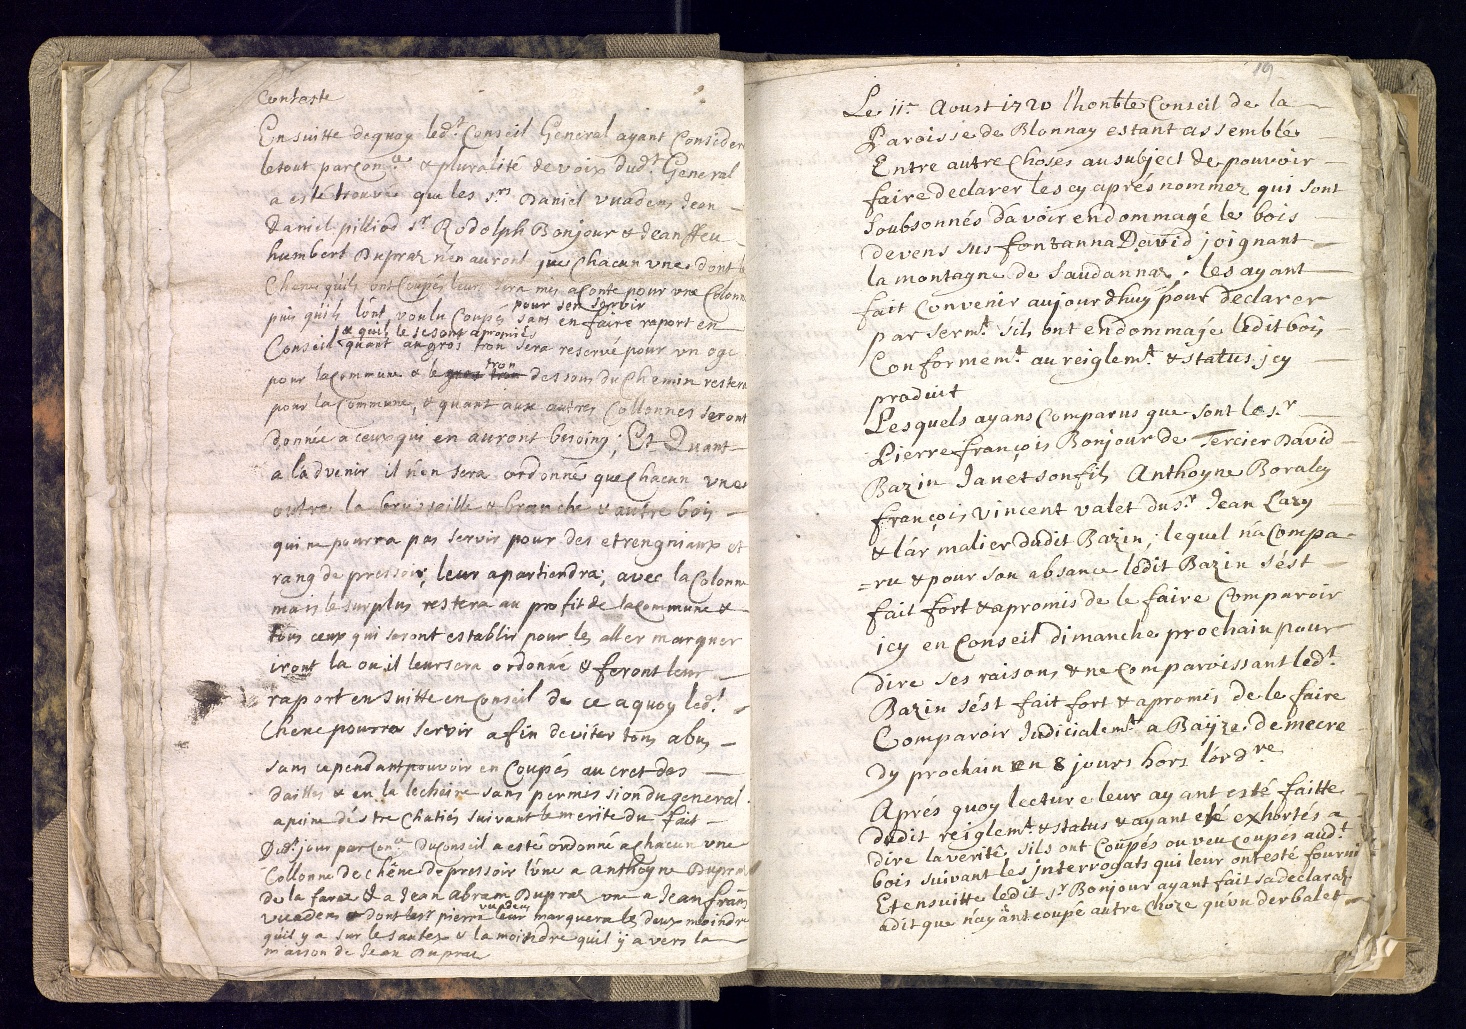 Conteste
En suitte de quoy led.t Conseil General ayant Considere
le tout par Con.e & pluralité de voix dud.t General
a esté trouvé que les s.rs Daniel vuadens Jean
Daniel pilliod s.r Rodolph Bonjour & Jean ffeu
humbert Dupraz n'en auront que Chacun une dont le
Chene quils ont Coupés leur sera mis a Conte pour une Colonne
puis quils l'ont voulu Coupes pour sen servir sans en faire raport en
Conseil & quils le se sont a promis, quant au gros tron sera reservé pour un oge
pour la Commune & le tron dessous du Chemin restera
pour la Commune, & quant aux autres Collonnes seront
donnée a ceux qui en auront besoing; Et Quant
a ladvenir il n'en sera ordonné que Chacun une
outre la broussaille & branche & autre bois
qui ne pourra pas servir pour des etrengniaux et
rang de pressoir, leur apartiendra; avec la Colonne
mais le surplus restera au profit de la Commune &
tous ceux qui seront establir pour les aller marquer
iront la ou il leur sera ordonné & feront leur
raport en suitte en Conseil de ce a quoy led.t
Chene pourra servir afin deviter tous abus
sans cependant pouvoir en Coupés au cret des
dailles & en la lecheire sans permission du general
a peine déstre Chatiés suivant le merite du fait
Dud.t jour par Con.e du Conseil a esté ordonné a Chacun une
Collonne de chêne de pressoir l'une a anthoyne Dupraz
de la faraz & a Jean abram Dupraz une a Jean frans
vuadens dont le s.r pierre vuadens leur marquera les deux moindre
quil y a sur le sautez & la moindre quil y a vers la
maison de Jean Dupraz
19
Le 11.e Aoust 1720 l'honble Conseil de la
Paroisse de Blonnay estant assemblé
Entre autre Choses au subject de pouvoir
faire declarer les cy aprés nommez qui sont
soubsonnés d'avoir endommagé le bois
devens sus fontanna David joignant
la montagne de Saudannaz. les ayant
fait Convenir aujourdhuy pour declarer
par serm.t s'ils ont endommagé ledit bois
Conformem.t au reiglem.t & status icy
produit
Lesquels ayans Comparus que sont le s.r
Pierre françois Bonjour de Tercier David
Bazin Jan et son fils Anthoyne Boraley
françois vincent valet du s.r Jean Lazy
& l'armalier dudit Bazin, lequel n'a Compa-
=ru & pour son absance ledit Bazin s'ést
fait fort & a promis de le faire Comparoir
icy en Conseil dimanche prochain pour
dire ses raisons & ne Comparoissant led.t
Bazin s'ést fait fort & a promis de le faire
Comparoir Judicialem.t a Bayze de mecre
dy prochain en 8 jours hors l'ord.re
Aprés quoy lecture leur ayant esté faitte
dudit reiglem.t & status & ayant eté exhortés a
dire la verité s'ils ont Coupés ou veu coupes aud.t
bois suivant les interrogats qui leur ont esté fourni
Et ensuitte ledit s.r Bonjour ayant fait sa declaraz
a dit que n'ayant coupé autre Choze qu'un derbalet